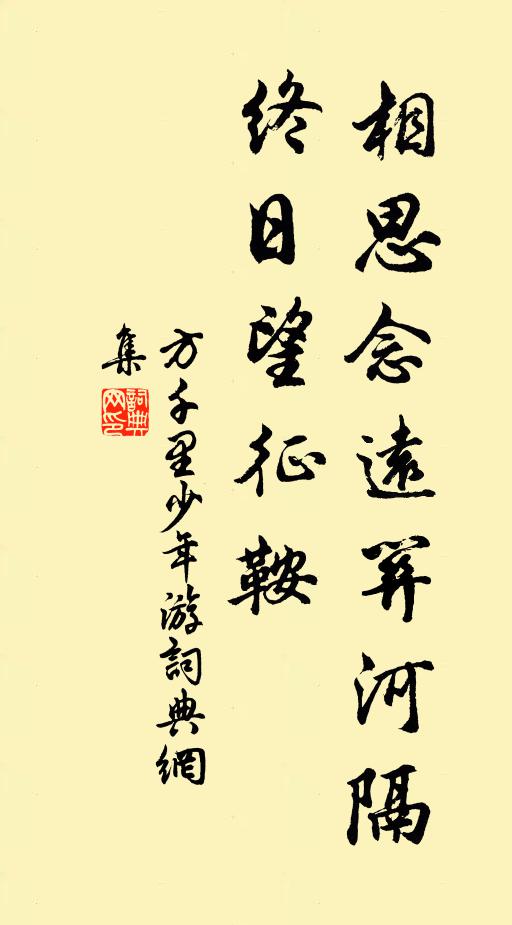 相思念遠關河隔
終日望征鞍
方千里少年游詞典網
集
詞典
网印